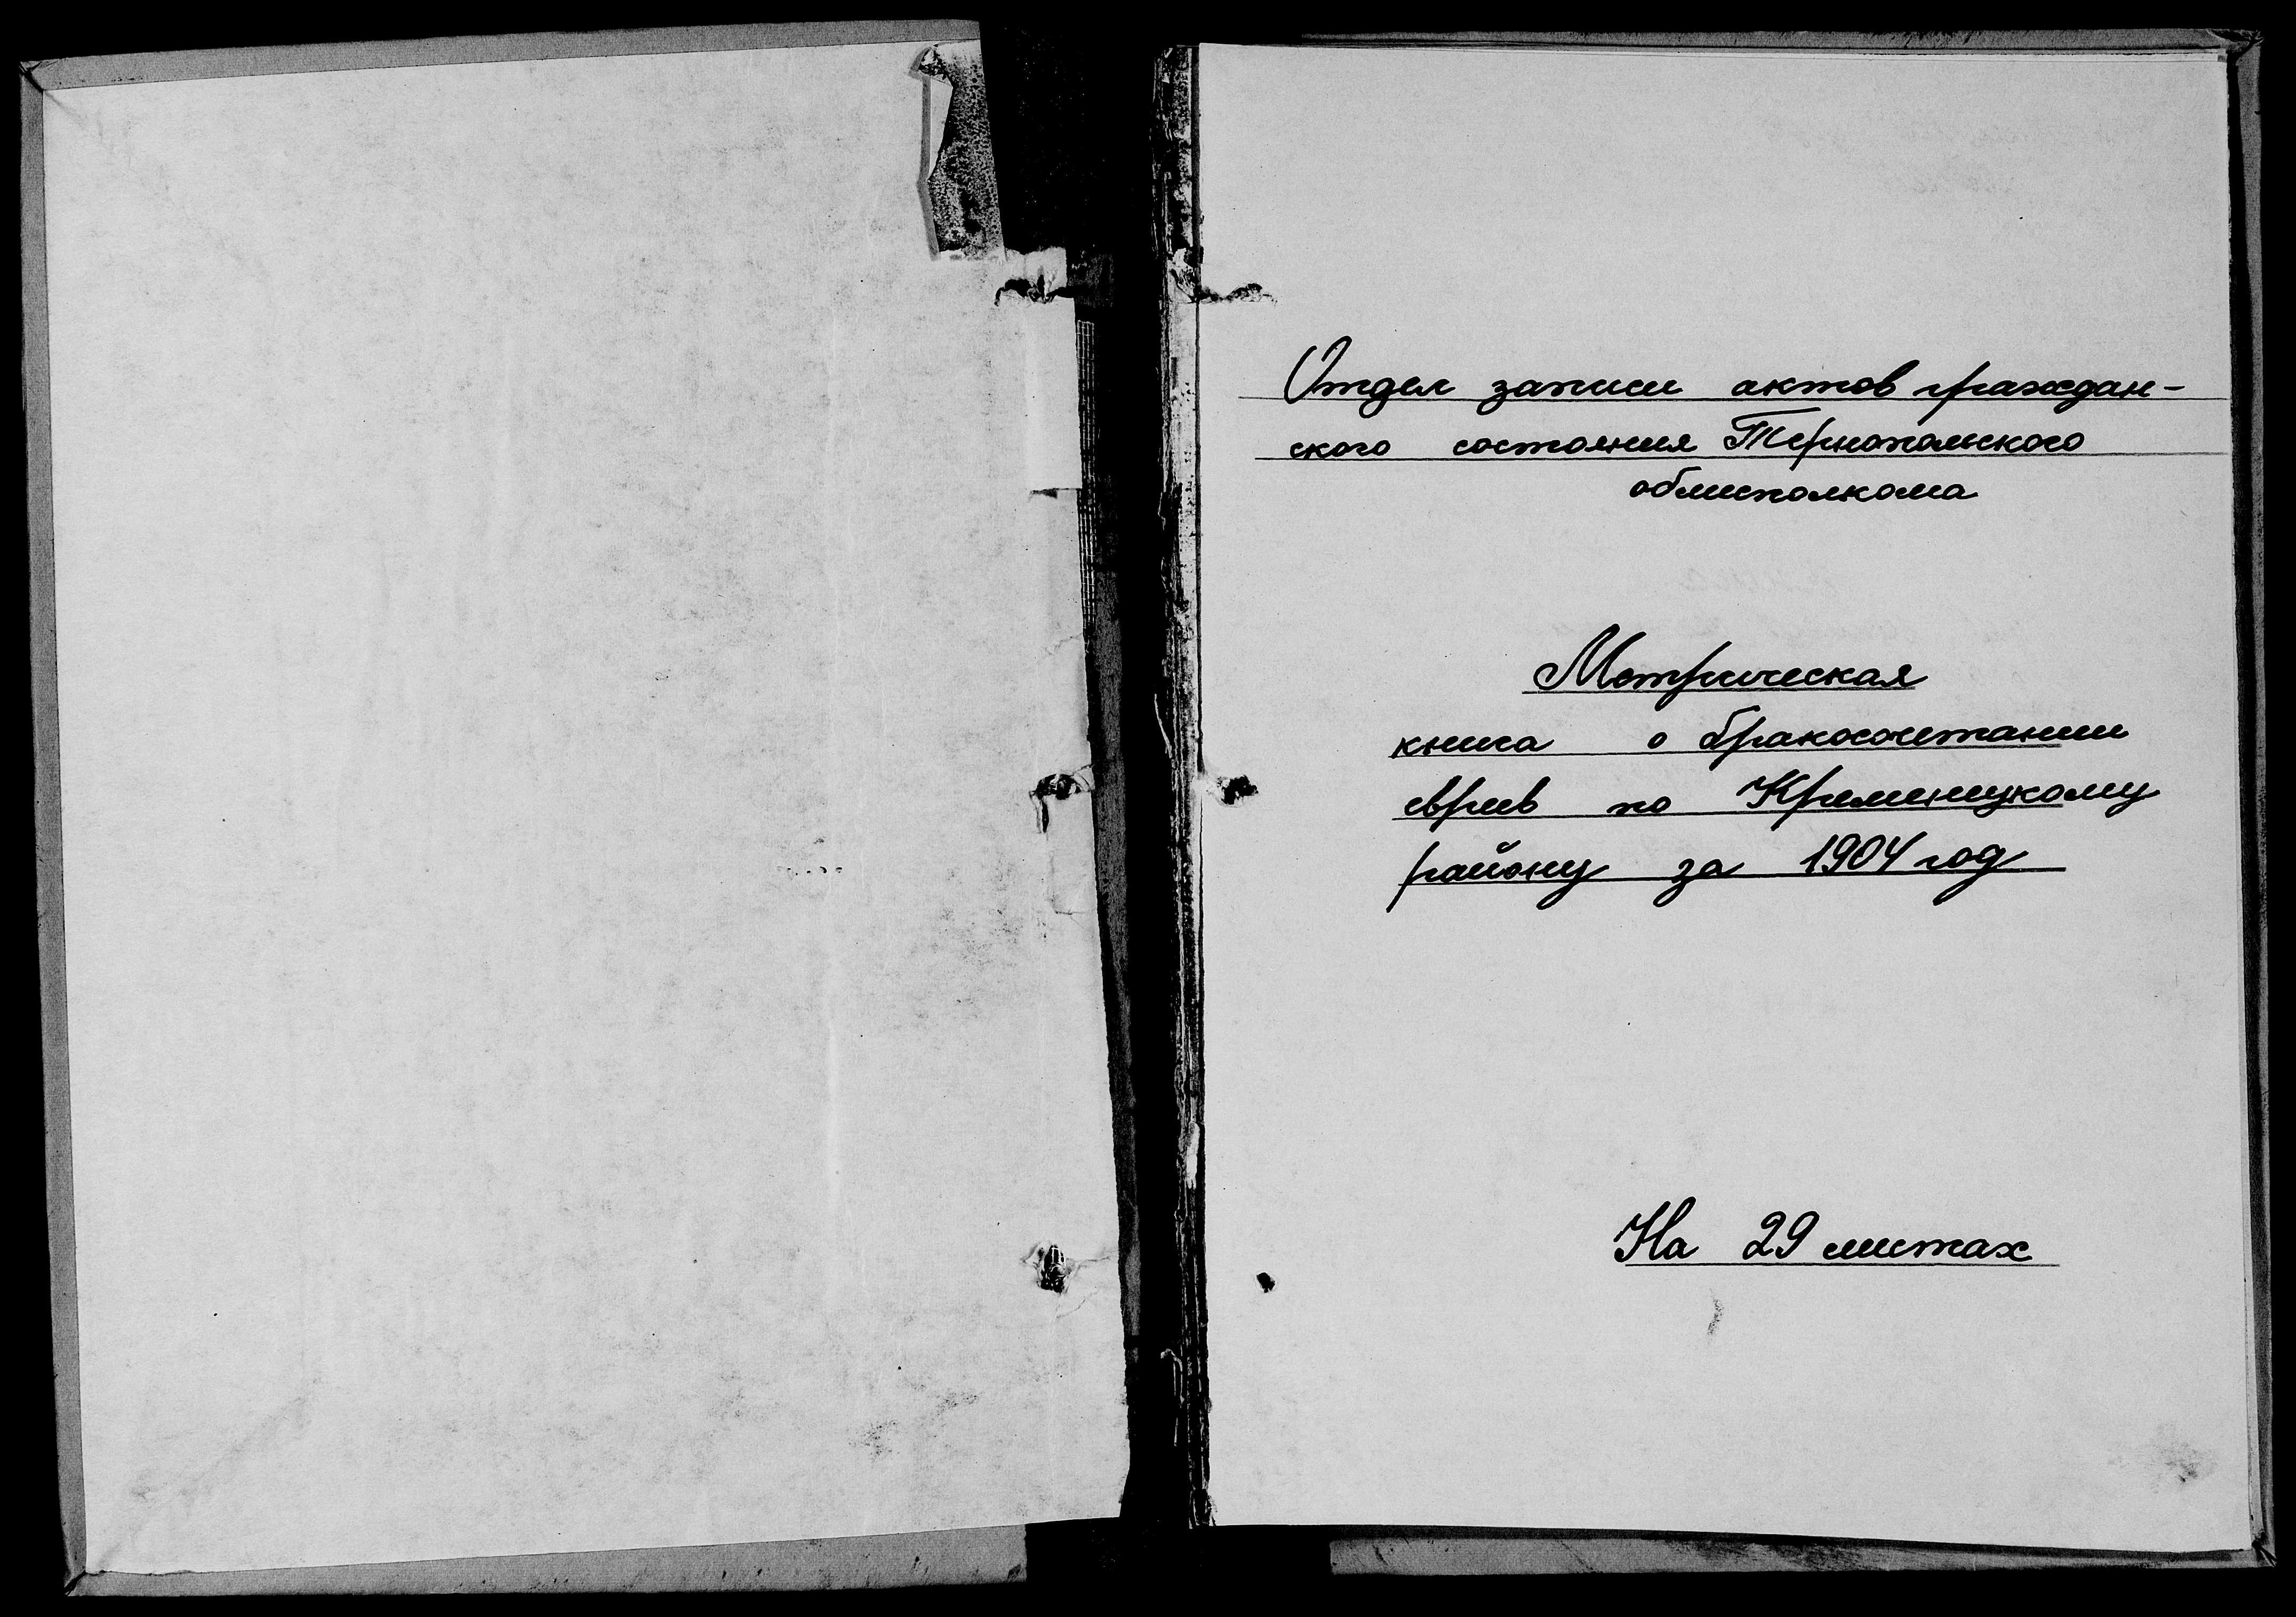 Отдел записи актов граждан-
ского состояния Тернопольского
облисполкома
Метрическая
книга о бракосочетании
евреев по Кременецкому
району за 1904 год
На 29 листах